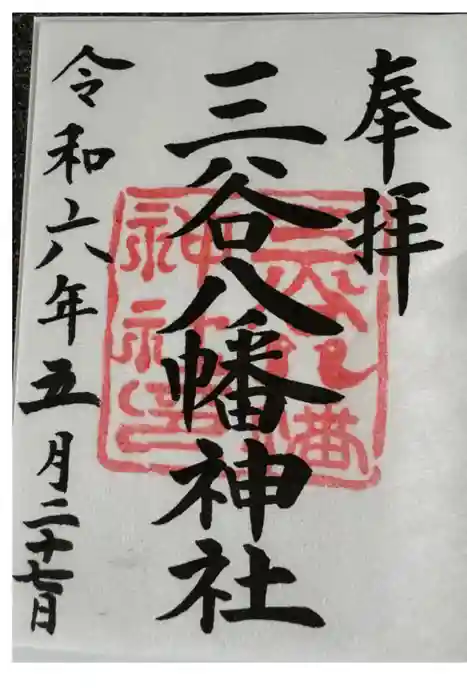 奉拝
三谷八幡神社
令和六年五月二十七日
三谷八幡
神社印